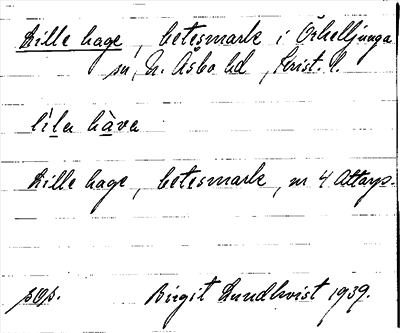 Lille hage, betesmark i Örkelljunga
sn, N. Åsbo hd, Krist. l.
li̇la hava
Lille hage, betesmark, nr 4 Attarp.
sos.
Birgit Lundkvist 1939.